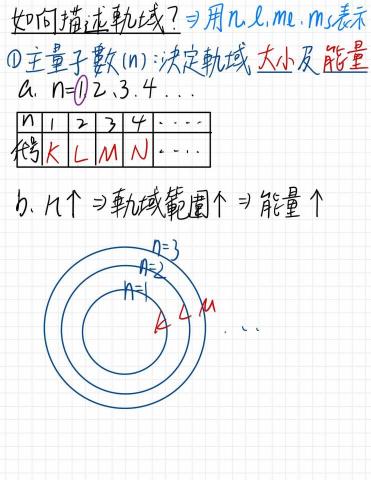 如何描述軌域?⇒用n.l.me.ms表示
①主量子數(n):決定軌域 大小及能量
a. n=1,2、3.4...
n 1 2 3 4 .....
代號 K L M N .....
b. n↑⇒軌域範圍↑⇒能量↑
n=3
n=2
n=1
K L M ...